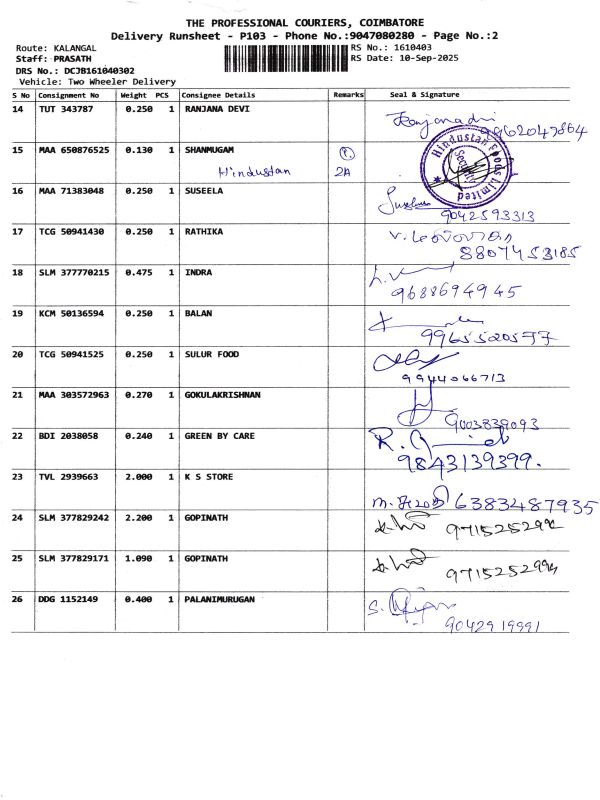 THE PROFESSIONAL COURIERS, COIMBATORE
Delivery Runsheet - P103 - Phone No.:9047080280 - Page No.:2
Route: KALANGAL RS No.: 1610403
Staff: PRASATH RS Date: 10-Sep-2025
DRS No.: DCJB161040302
Vehicle: Two Wheeler Delivery
S No Consignment No Weight PCS Consignee Details Remarks Seal & Signature
14 TUT 343787 0.250 1 RANJANA DEVI
9962047864
15 MAA 650876525 0.130 1 SHANMUGAM
Hindustan 2A
Hindustan Foods Limited
Security
16 MAA 71383048 0.250 1 SUSEELA
9042593313
17 TCG 50941430 0.250 1 RATHIKA
8807453185
18 SLM 377770215 0.475 1 INDRA
9688694945
19 KCM 50136594 0.250 1 BALAN
9965520577
20 TCG 50941525 0.250 1 SULUR FOOD
9944066713
21 MAA 303572963 0.270 1 GOKULAKRISHNAN
9003839093
22 BDI 2038058 0.240 1 GREEN BY CARE
9843139399.
23 TVL 2939663 2.000 1 K S STORE
6383487935
24 SLM 377829242 2.200 1 GOPINATH
25 SLM 377829171 1.090 1 GOPINATH
9715252994
26 DDG 1152149 0.400 1 PALANIMURUGAN
9042919991